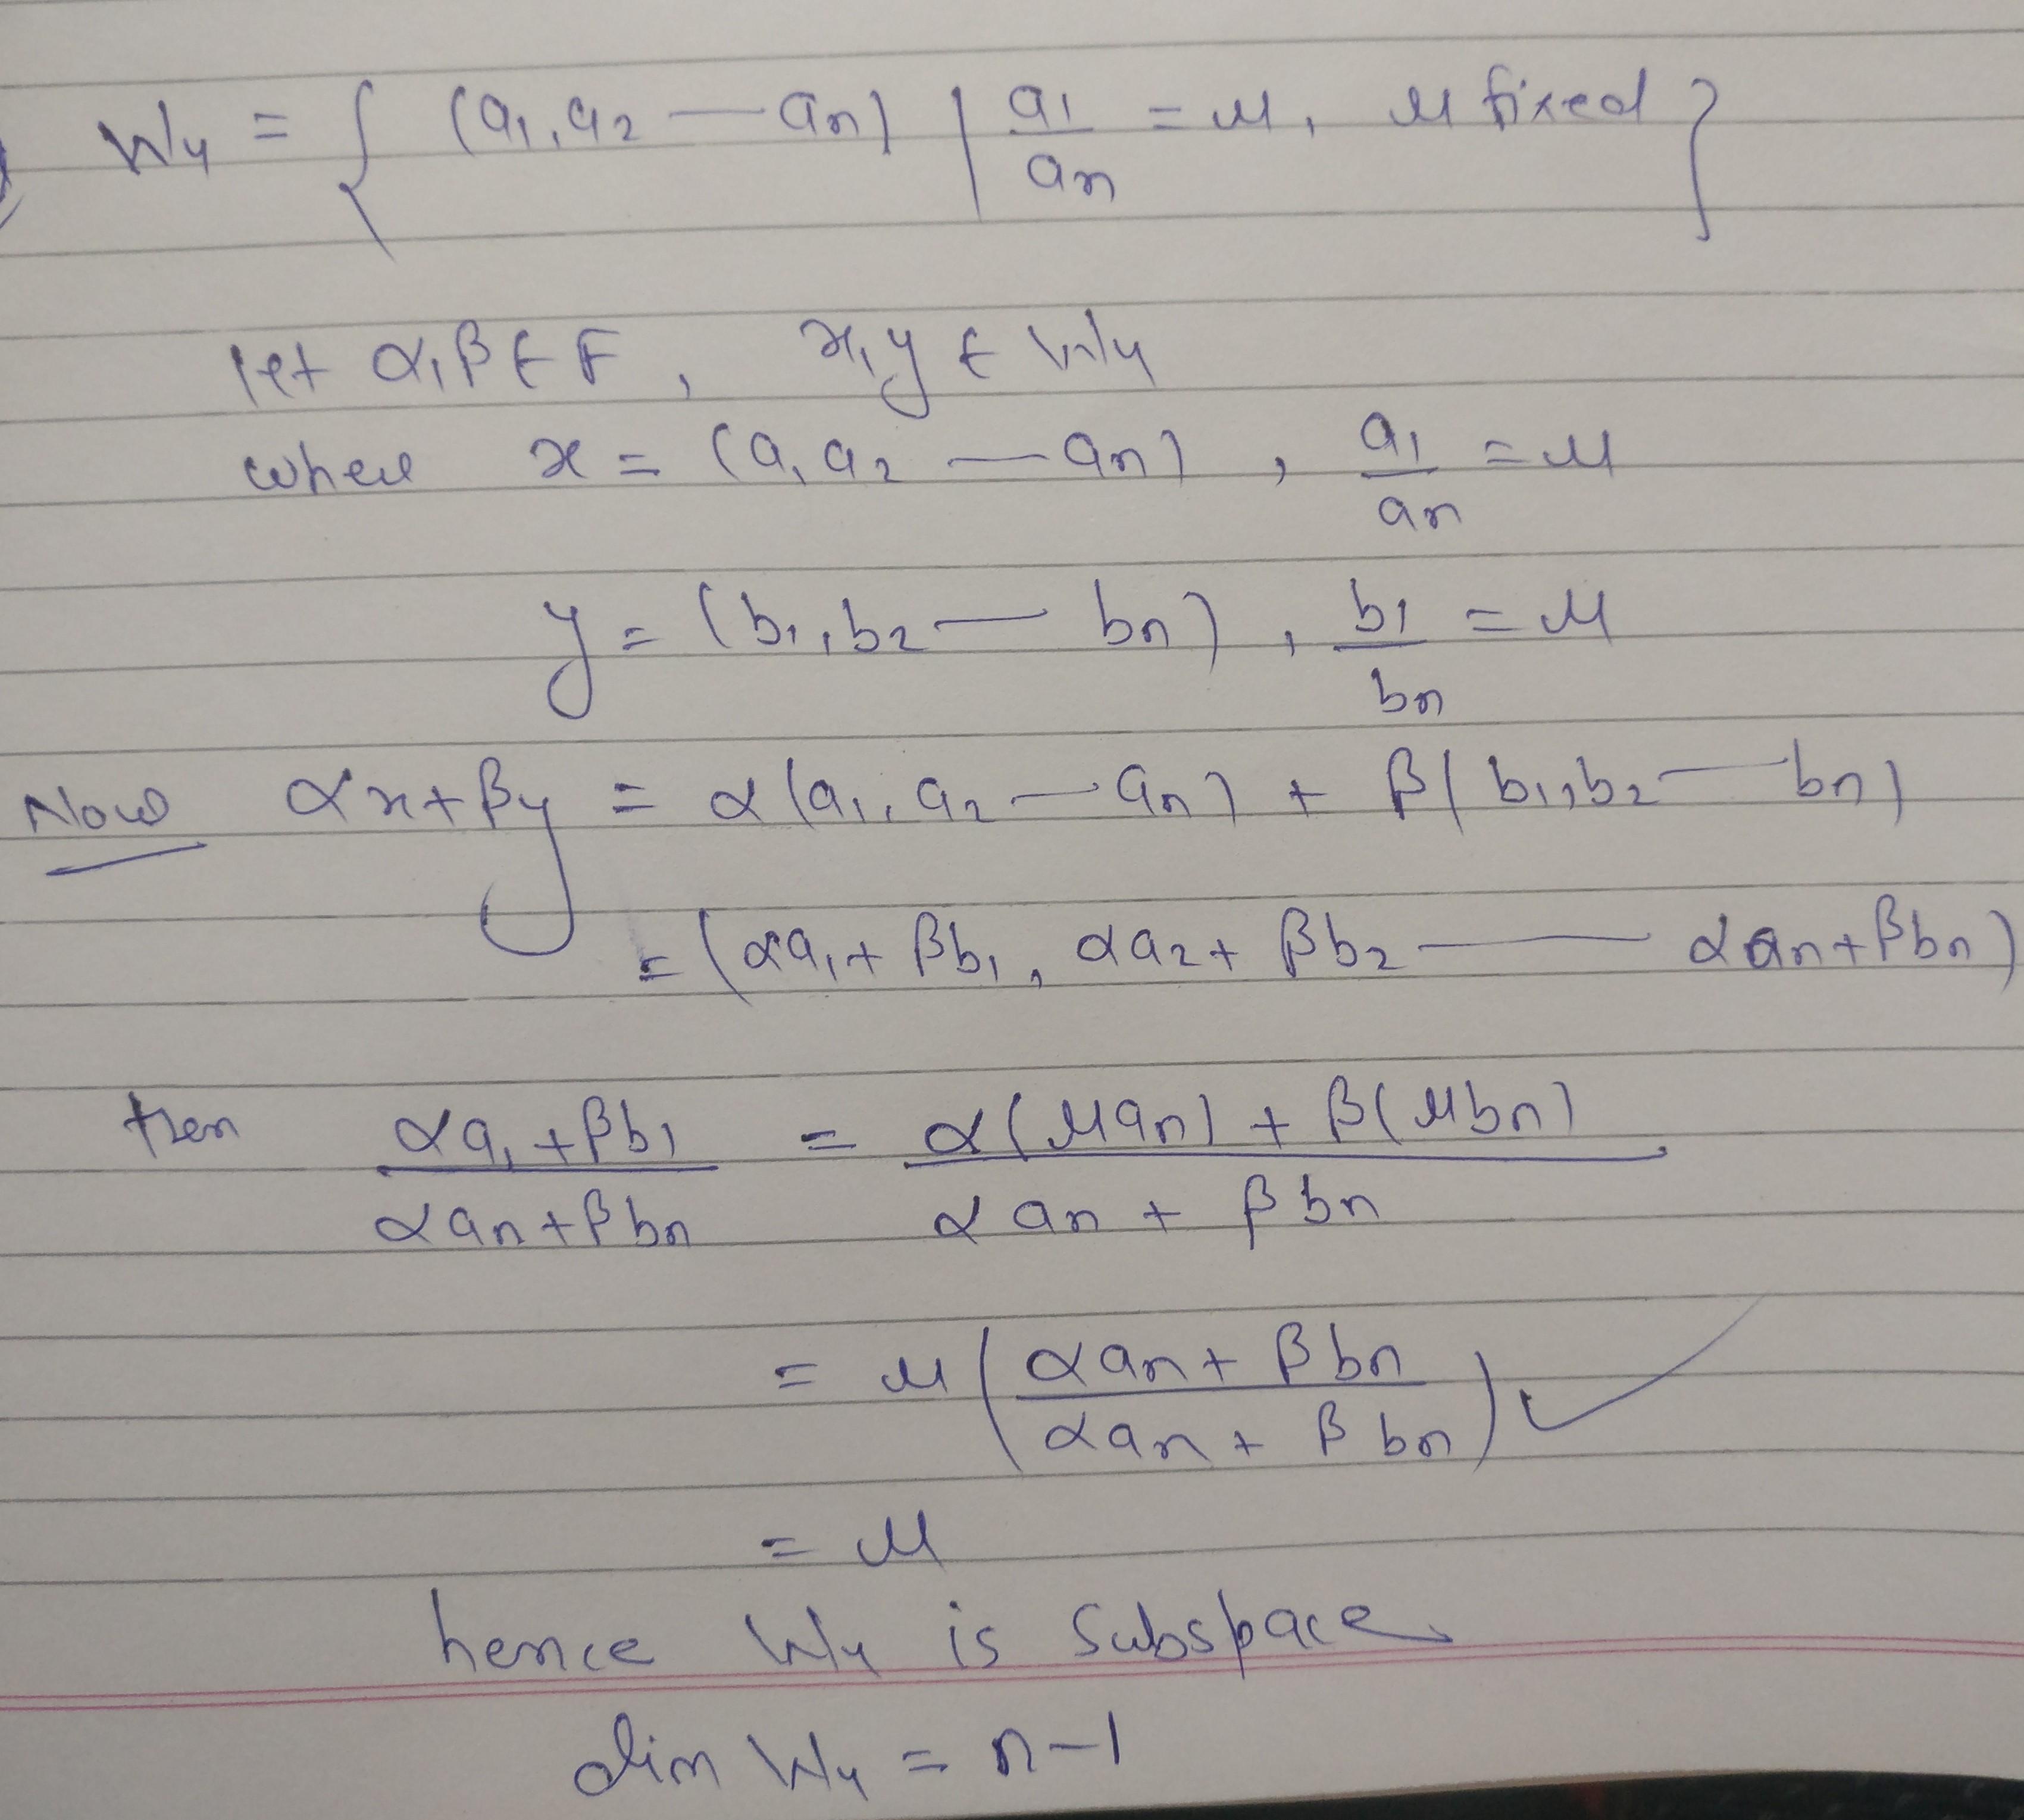 W₄ = { (a₁, a₂ — aₙ) | a₁/aₙ = μ, μ fixed }
let α, β ∈ F, x, y ∈ W₄
where x = (a₁ a₂ — aₙ), a₁/aₙ = μ
y = (b₁, b₂ — bₙ), b₁/bₙ = μ
Now αx + βy = α(a₁, a₂ — aₙ) + β(b₁, b₂ — bₙ)
= (αa₁ + βb₁, αa₂ + βb₂ — αaₙ + βbₙ)
then (αa₁ + βb₁)/(αaₙ + βbₙ) = (α(μaₙ) + β(μbₙ))/(αaₙ + βbₙ)
= μ((αaₙ + βbₙ)/(αaₙ + βbₙ)) ✓
= μ
hence W₄ is Subspace
dim W₄ = n-1